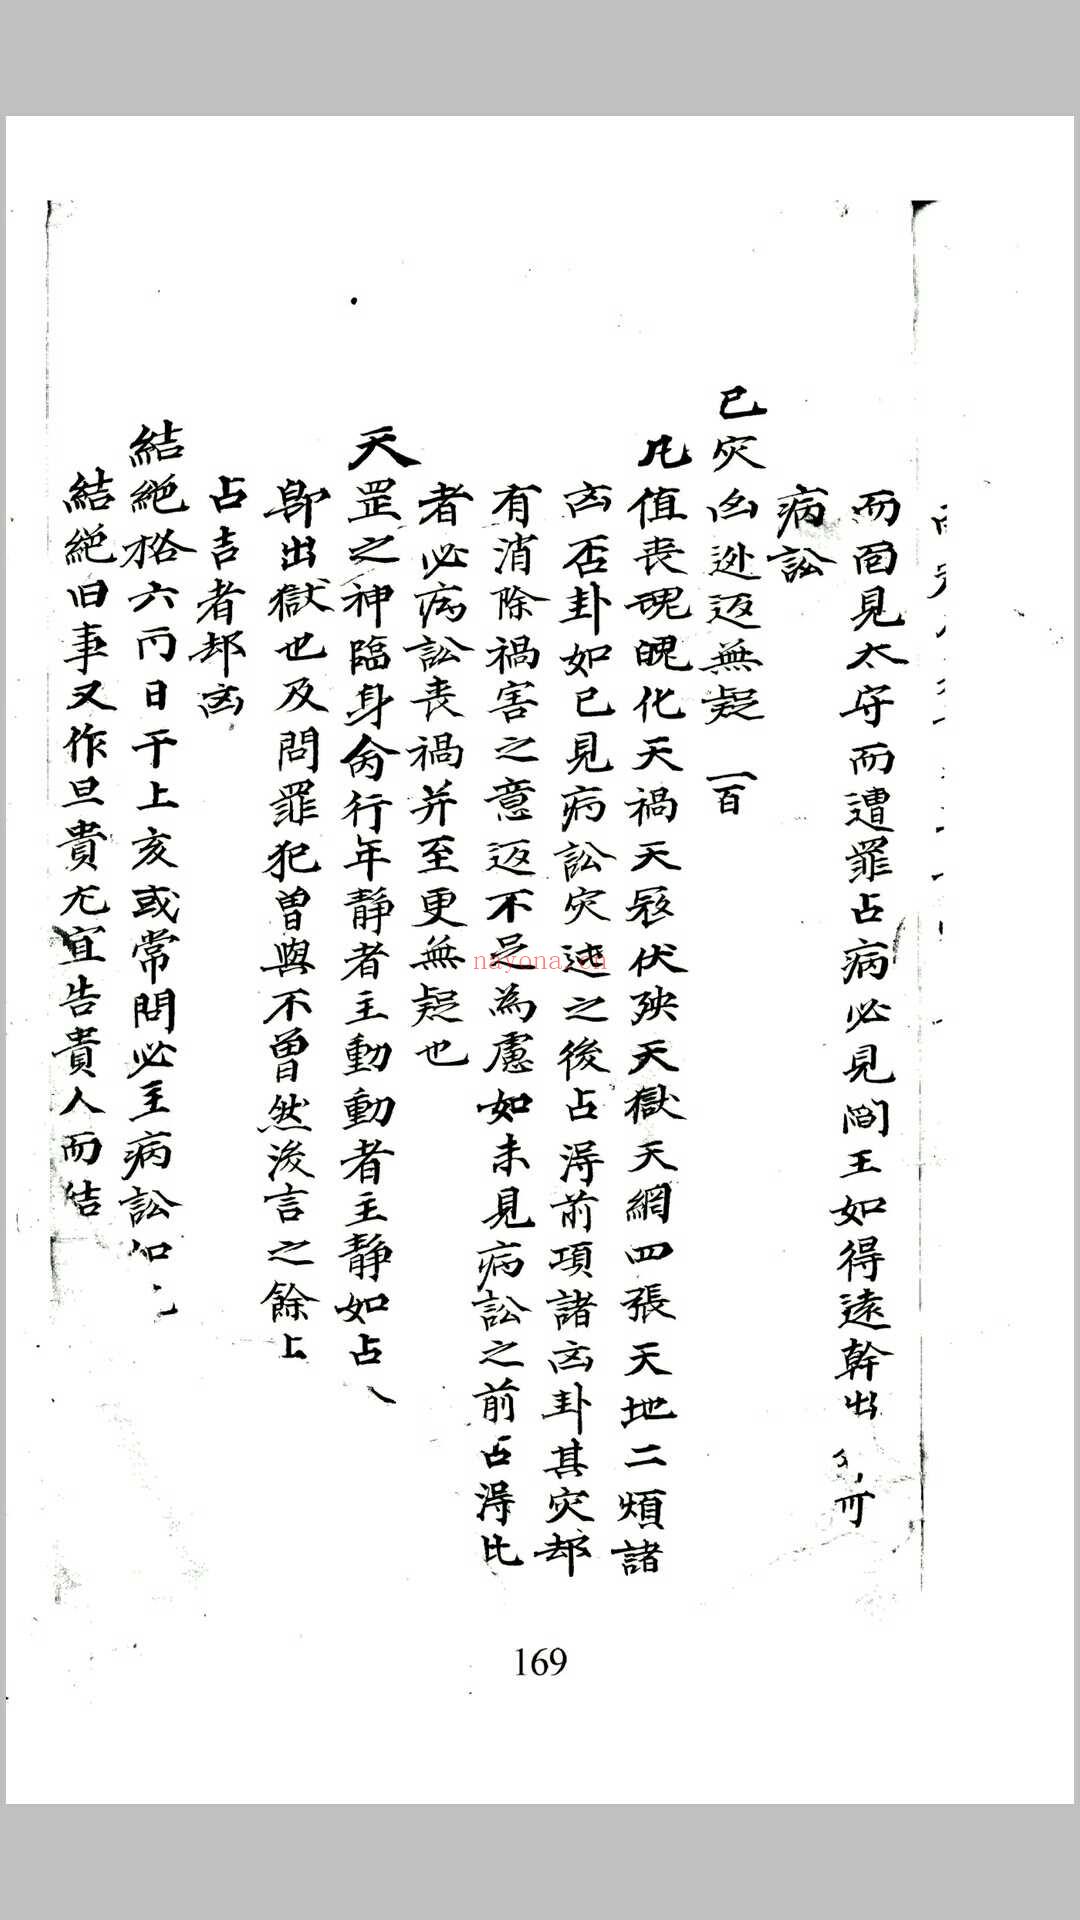 而囬見太守而遭罪占病必見閻王如得遠幹出
病訟
已災凶迯返無疑 一百
凡值丧魂魄化天禍天寇伏殃天獄天網四張天地二煩諸
凶否卦如已見病訟災迍之後占淂前項諸凶卦其災却
有消除禍害之意返不足為慮如未見病訟之前占淂比
者必病訟丧禍并至更無疑也
天罡之神臨身命行年靜者主動動者主靜如占
即出獄也及問罪犯曾與不曾然後言之餘上
占吉者却凶
結絕格六丙日干上亥或常問必主病訟如
結絕旧事又作旦貴尤宜告貴人而结
nayona.cn
169